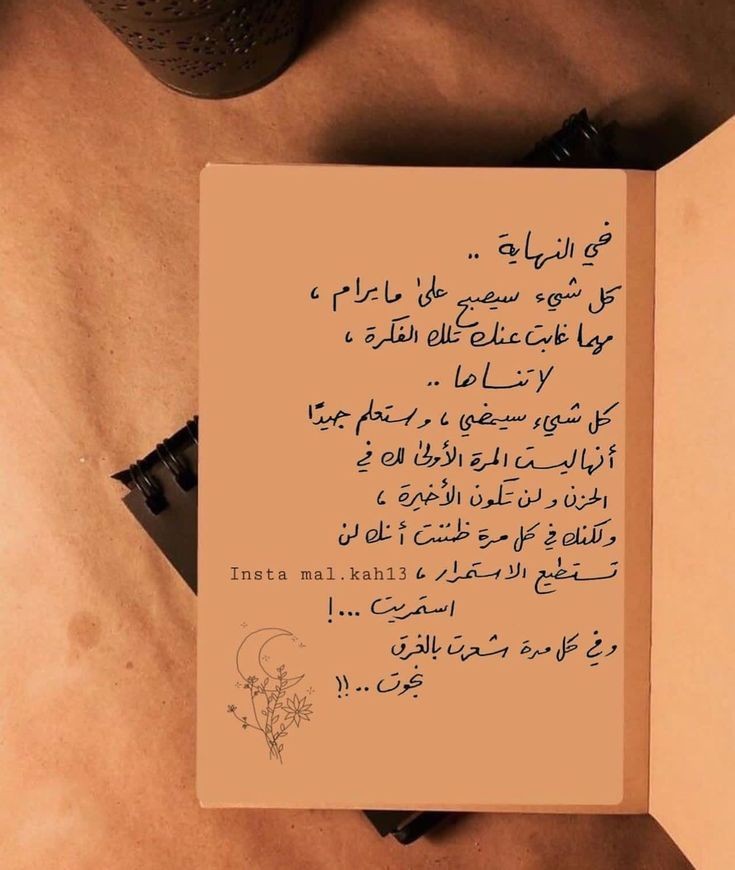 في النهاية ..
كل شيء سيصبح على ما يرام ،
مهما غابت عنك تلك الفكرة ،
لا تنساها ..
كل شيء سيمضي ، وستعلم جيدًا
أنها ليست المرة الأولى لك في
الحزن ولن تكون الأخيرة ،
ولكنك في كل مرة ظننت أنك لن
تستطيع الاستمرار ، Insta mal.kah13
استمريت ...!
وفي كل مرة شعرت بالغرق
نجوت ..!!